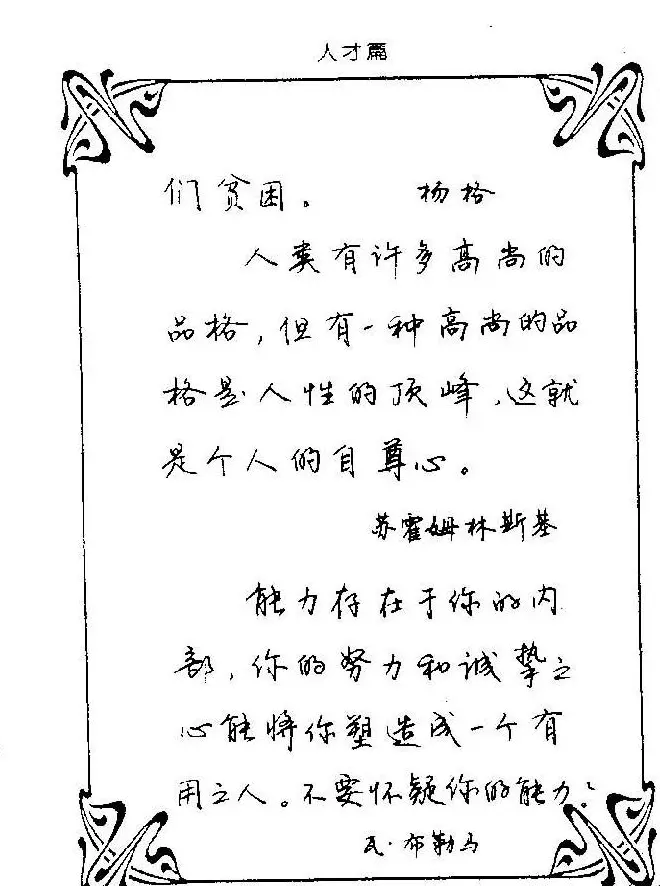 人才篇
们贫困。 杨格
人类有许多高尚的
品格,但有一种高尚的品
格是人性的顶峰,这就
是个人的自尊心。
苏霍姆林斯基
能力存在于你的内
部,你的努力和诚挚之
心能将你塑造成一个有
用之人。不要怀疑你的能力?
瓦·布勒马